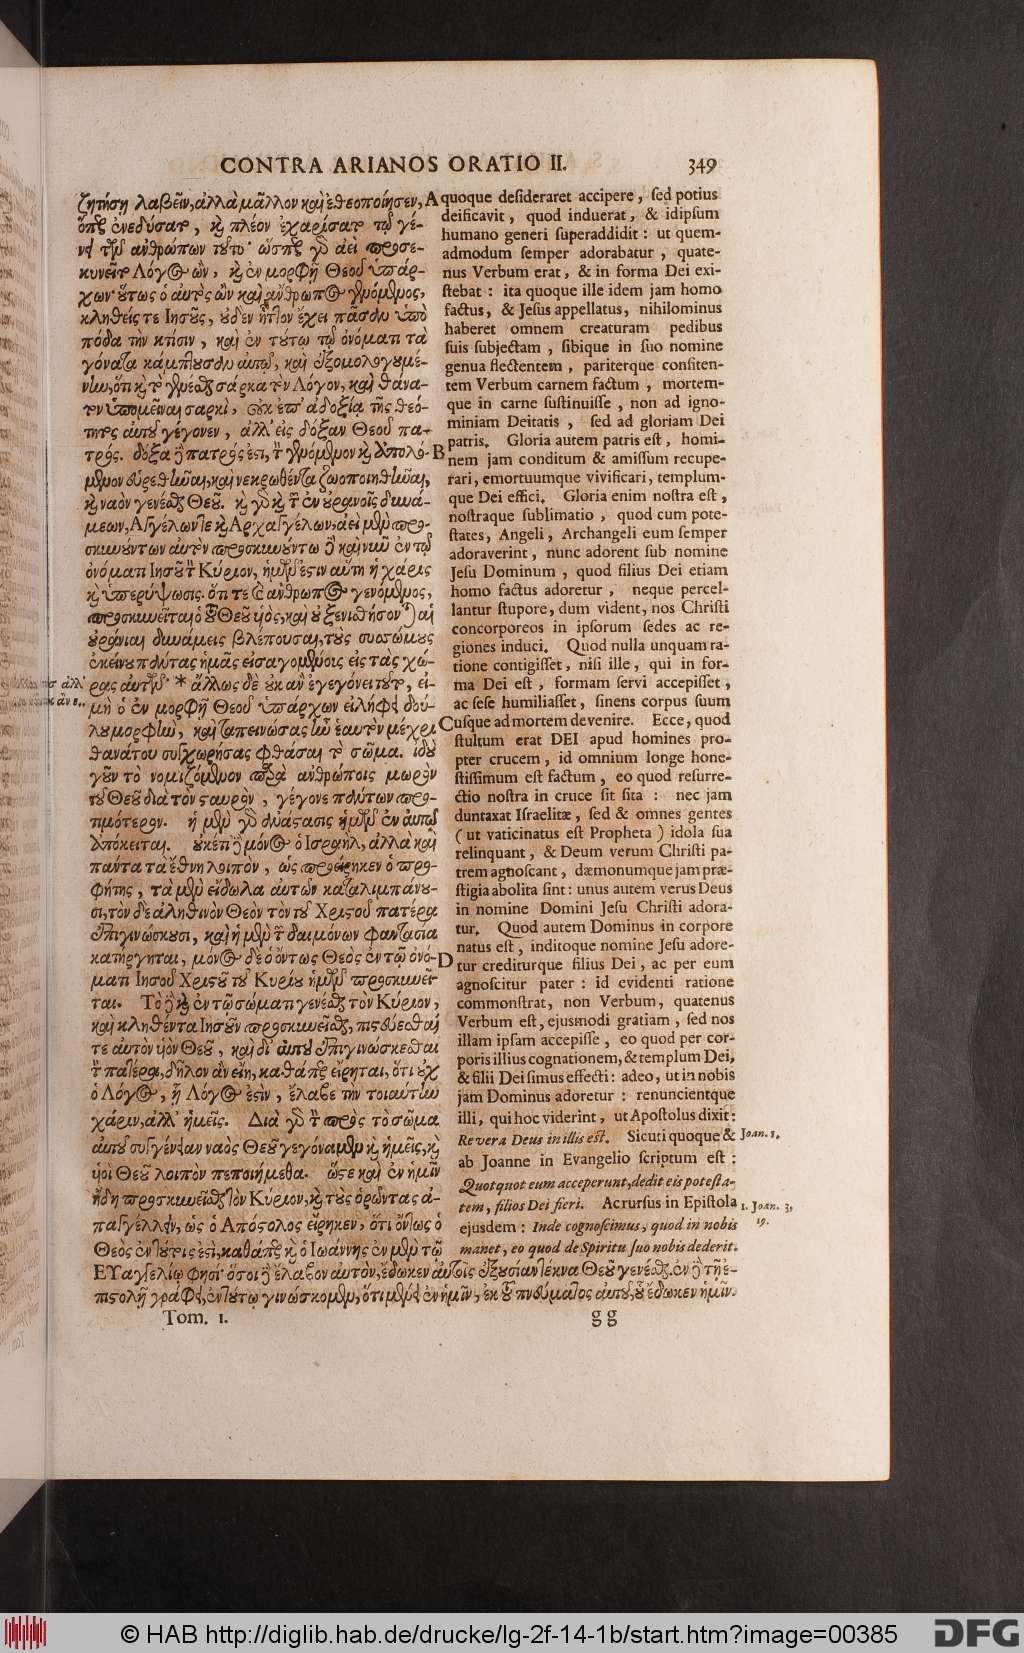 CONTRA ARIANOS ORATIO II. 349
ζητήσῃ λαβεῖν, ἀλλὰ μᾶλλον καὶ ἐθεοποίησεν,
ὅπερ ἐνεδύσατο, καὶ πλέον ἐχαρίσατο τῷ γέ-
νει τῶν ἀνθρώπων τοῦτο· ὥσπερ γὰρ ἀεὶ προσε-
κυνεῖτο Λόγος ὢν, καὶ ἐν μορφῇ Θεοῦ ὑπάρ-
χων· οὕτως ὁ αὐτὸς ὢν καὶ ἄνθρωπος γενόμενος,
κληθείς τε Ἰησοῦς, οὐδὲν ἧττον ἔχει πᾶσαν ὑπὸ
πόδα τὴν κτίσιν, καὶ ἐν τούτῳ τῷ ὀνόματι τὰ
γόνατα κάμπτουσαν αὐτῷ, καὶ ἐξομολογουμέ-
νην, ὅτι καὶ τὸ γενέσθαι σάρκα τὸν Λόγον, καὶ θάνα-
τον ὑπομεῖναι σαρκὶ, οὐκ ἐπ' ἀδοξίᾳ τῆς θεό-
τητος αὐτοῦ γέγονεν, ἀλλ' εἰς δόξαν Θεοῦ πα-
τρός. δόξα δὲ πατρός ἐστι, τὸν γενόμενον καὶ ἀπολό-
μενον εὑρεθῆναι, καὶ νεκρωθέντα ζωοποιηθῆναι,
καὶ ναὸν γενέσθαι Θεοῦ. καὶ γὰρ καὶ τῶν ἐν οὐρανοῖς δυνά-
μεων, Ἀγγέλων τε καὶ Ἀρχαγγέλων, ἀεὶ μὲν προσ-
κυνούντων αὐτὸν προσκυνούντων δὲ καὶ νῦν ἐν τῷ
ὀνόματι Ἰησοῦ τὸν Κύριον, ἡμῶν ἐστιν αὕτη ἡ χάρις
καὶ ὑπερύψωσις· ὅτι τε καὶ ἄνθρωπος γενόμενος,
προσκυνεῖται ὁ τοῦ Θεοῦ υἱὸς, καὶ οὐ ξενισθήσονται αἱ
οὐράνιαι δυνάμεις βλέπουσαι, τοὺς συσσώμους
ἐκείνου πάντας ἡμᾶς εἰσαγομένους εἰς τὰς χώ-
ρας αὐτῶν· * ἄλλως δὲ οὐκ ἂν ἐγεγόνει τοῦτο, εἰ-
μὴ ὁ ἐν μορφῇ Θεοῦ ὑπάρχων εἰλήφει δού-
λου μορφὴν, καὶ ταπεινώσας ἦν ἑαυτὸν μέχρι
θανάτου συγχωρήσας φθάσαι τὸ σῶμα. ἰδοὺ
γοῦν τὸ νομιζόμενον παρὰ ἀνθρώποις μωρὸν
τοῦ Θεοῦ διὰ τὸν σταυρὸν, γέγονε πάντων προ-
τιμότερον. ἡ μὲν γὰρ ἀνάστασις ἡμῶν ἐν αὐτῷ
ἀπόκειται. οὐκέτι δὲ μόνος ὁ Ἰσραὴλ, ἀλλὰ καὶ
πάντα τὰ ἔθνη λοιπὸν, ὡς προείρηκεν ὁ προ-
φήτης, τὰ μὲν εἴδωλα αὐτῶν καταλιμπάνου-
σι, τὸν δὲ ἀληθινὸν Θεὸν τὸν τοῦ Χριστοῦ πατέρα
ἐπιγινώσκουσι, καὶ ἡ μὲν τῶν δαιμόνων φαντασία
κατήργηται, μόνος δὲ ὁ ὄντως Θεὸς ἐν τῷ ὀνό-
ματι Ἰησοῦ Χριστοῦ τοῦ Κυρίου ἡμῶν προσκυνεῖ-
ται. Τὸ δὲ καὶ ἐν τῷ σώματι γενέσθαι τὸν Κύριον,
καὶ κληθέντα Ἰησοῦν προσκυνεῖσθαι, πιστεύεσθαί
τε αὐτὸν υἱὸν Θεοῦ, καὶ δι' αὐτοῦ ἐπιγινώσκεσθαι
τὸν πατέρα, δῆλον ἂν εἴη, καθάπερ εἴρηται, ὅτι οὐχ
ὁ Λόγος, ᾗ Λόγος ἐστὶν, ἔλαβε τὴν τοιαύτην
χάριν, ἀλλ' ἡμεῖς. Διὰ γὰρ τὴν πρὸς τὸ σῶμα
αὐτοῦ συγγένειαν ναὸς Θεοῦ γεγόναμεν καὶ ἡμεῖς, καὶ
υἱοὶ Θεοῦ λοιπὸν πεποιήμεθα. ὥστε καὶ ἐν ἡμῖν
ἤδη προσκυνεῖσθαι τὸν Κύριον, καὶ τοὺς ὁρῶντας ἀ-
παγγέλλειν, ὡς ὁ Ἀπόστολος εἴρηκεν, ὅτι ὄντως ὁ
Θεὸς ἐν τούτοις ἐστὶ, καθάπερ καὶ ὁ Ἰωάννης ἐν μὲν τῷ
Εὐαγγελίῳ φησί· ὅσοι δὲ ἔλαβον αὐτὸν, ἔδωκεν αὐτοῖς ἐξουσίαν τέκνα Θεοῦ γενέσθαι. ἐν δὲ τῇ ἐ-
πιστολῇ γράφει, ἐν τούτῳ γινώσκομεν, ὅτι μένει ἐν ἡμῖν, ἐκ τοῦ πνεύματος αὐτοῦ, οὗ ἔδωκεν ἡμῖν.
A quoque desideraret accipere, sed potius
deificavit, quod induerat, & idipsum
humano generi superaddidit: ut quem-
admodum semper adorabatur, quate-
nus Verbum erat, & in forma Dei exi-
stebat: ita quoque ille idem jam homo
factus, & Jesus appellatus, nihilominus
haberet omnem creaturam pedibus
suis subjectam, sibique in suo nomine
genua flectentem, pariterque confiten-
tem Verbum carnem factum, mortem-
que in carne sustinuisse, non ad igno-
miniam Deitatis, sed ad gloriam Dei
patris. Gloria autem patris est, homi-
B nem jam conditum & amissum recupe-
rari, emortuumque vivificari, templum-
que Dei effici. Gloria enim nostra est,
nostraque sublimatio, quod cum pote-
states, Angeli, Archangeli eum semper
adoraverint, nunc adorent sub nomine
Jesu Dominum, quod filius Dei etiam
homo factus adoretur, neque percel-
lantur stupore, dum vident, nos Christi
concorporeos in ipsorum sedes ac re-
giones induci. Quod nulla unquam ra-
tione contigisset, nisi ille, qui in for-
ma Dei est, formam servi accepisset,
ac sese humiliasset, sinens corpus suum
C usque ad mortem devenire. Ecce, quod
stultum erat DEI apud homines pro-
pter crucem, id omnium longe hone-
stissimum est factum, eo quod resurre-
ctio nostra in cruce sit sita: nec jam
duntaxat Israelitæ, sed & omnes gentes
(ut vaticinatus est Propheta) idola sua
relinquant, & Deum verum Christi pa-
trem agnoscant, dæmonumque jam præ-
stigia abolita sint: unus autem verus Deus
in nomine Domini Jesu Christi adora-
tur. Quod autem Dominus in corpore
natus est, inditoque nomine Jesu adore-
D tur crediturque filius Dei, ac per eum
agnoscitur pater: id evidenti ratione
commonstrat, non Verbum, quatenus
Verbum est, ejusmodi gratiam, sed nos
illam ipsam accepisse, eo quod per cor-
poris illius cognationem, & templum Dei,
& filii Dei simus effecti: adeo, ut in nobis
jam Dominus adoretur: renuncientque
illi, qui hoc viderint, ut Apostolus dixit:
Revera Deus in illis est. Sicuti quoque &
Joan. 1.
ab Joanne in Evangelio scriptum est:
Quotquot eum acceperunt, dedit eis potesta-
tem, filios Dei fieri. Ac rursus in Epistola
1. Joan. 3,
19.
ejusdem: Inde cognoscimus, quod in nobis
manet, eo quod de Spiritu suo nobis dederit.
Tom. 1. gg
© HAB http://diglib.hab.de/drucke/lg-2f-14-1b/start.htm?image=00385
DFG